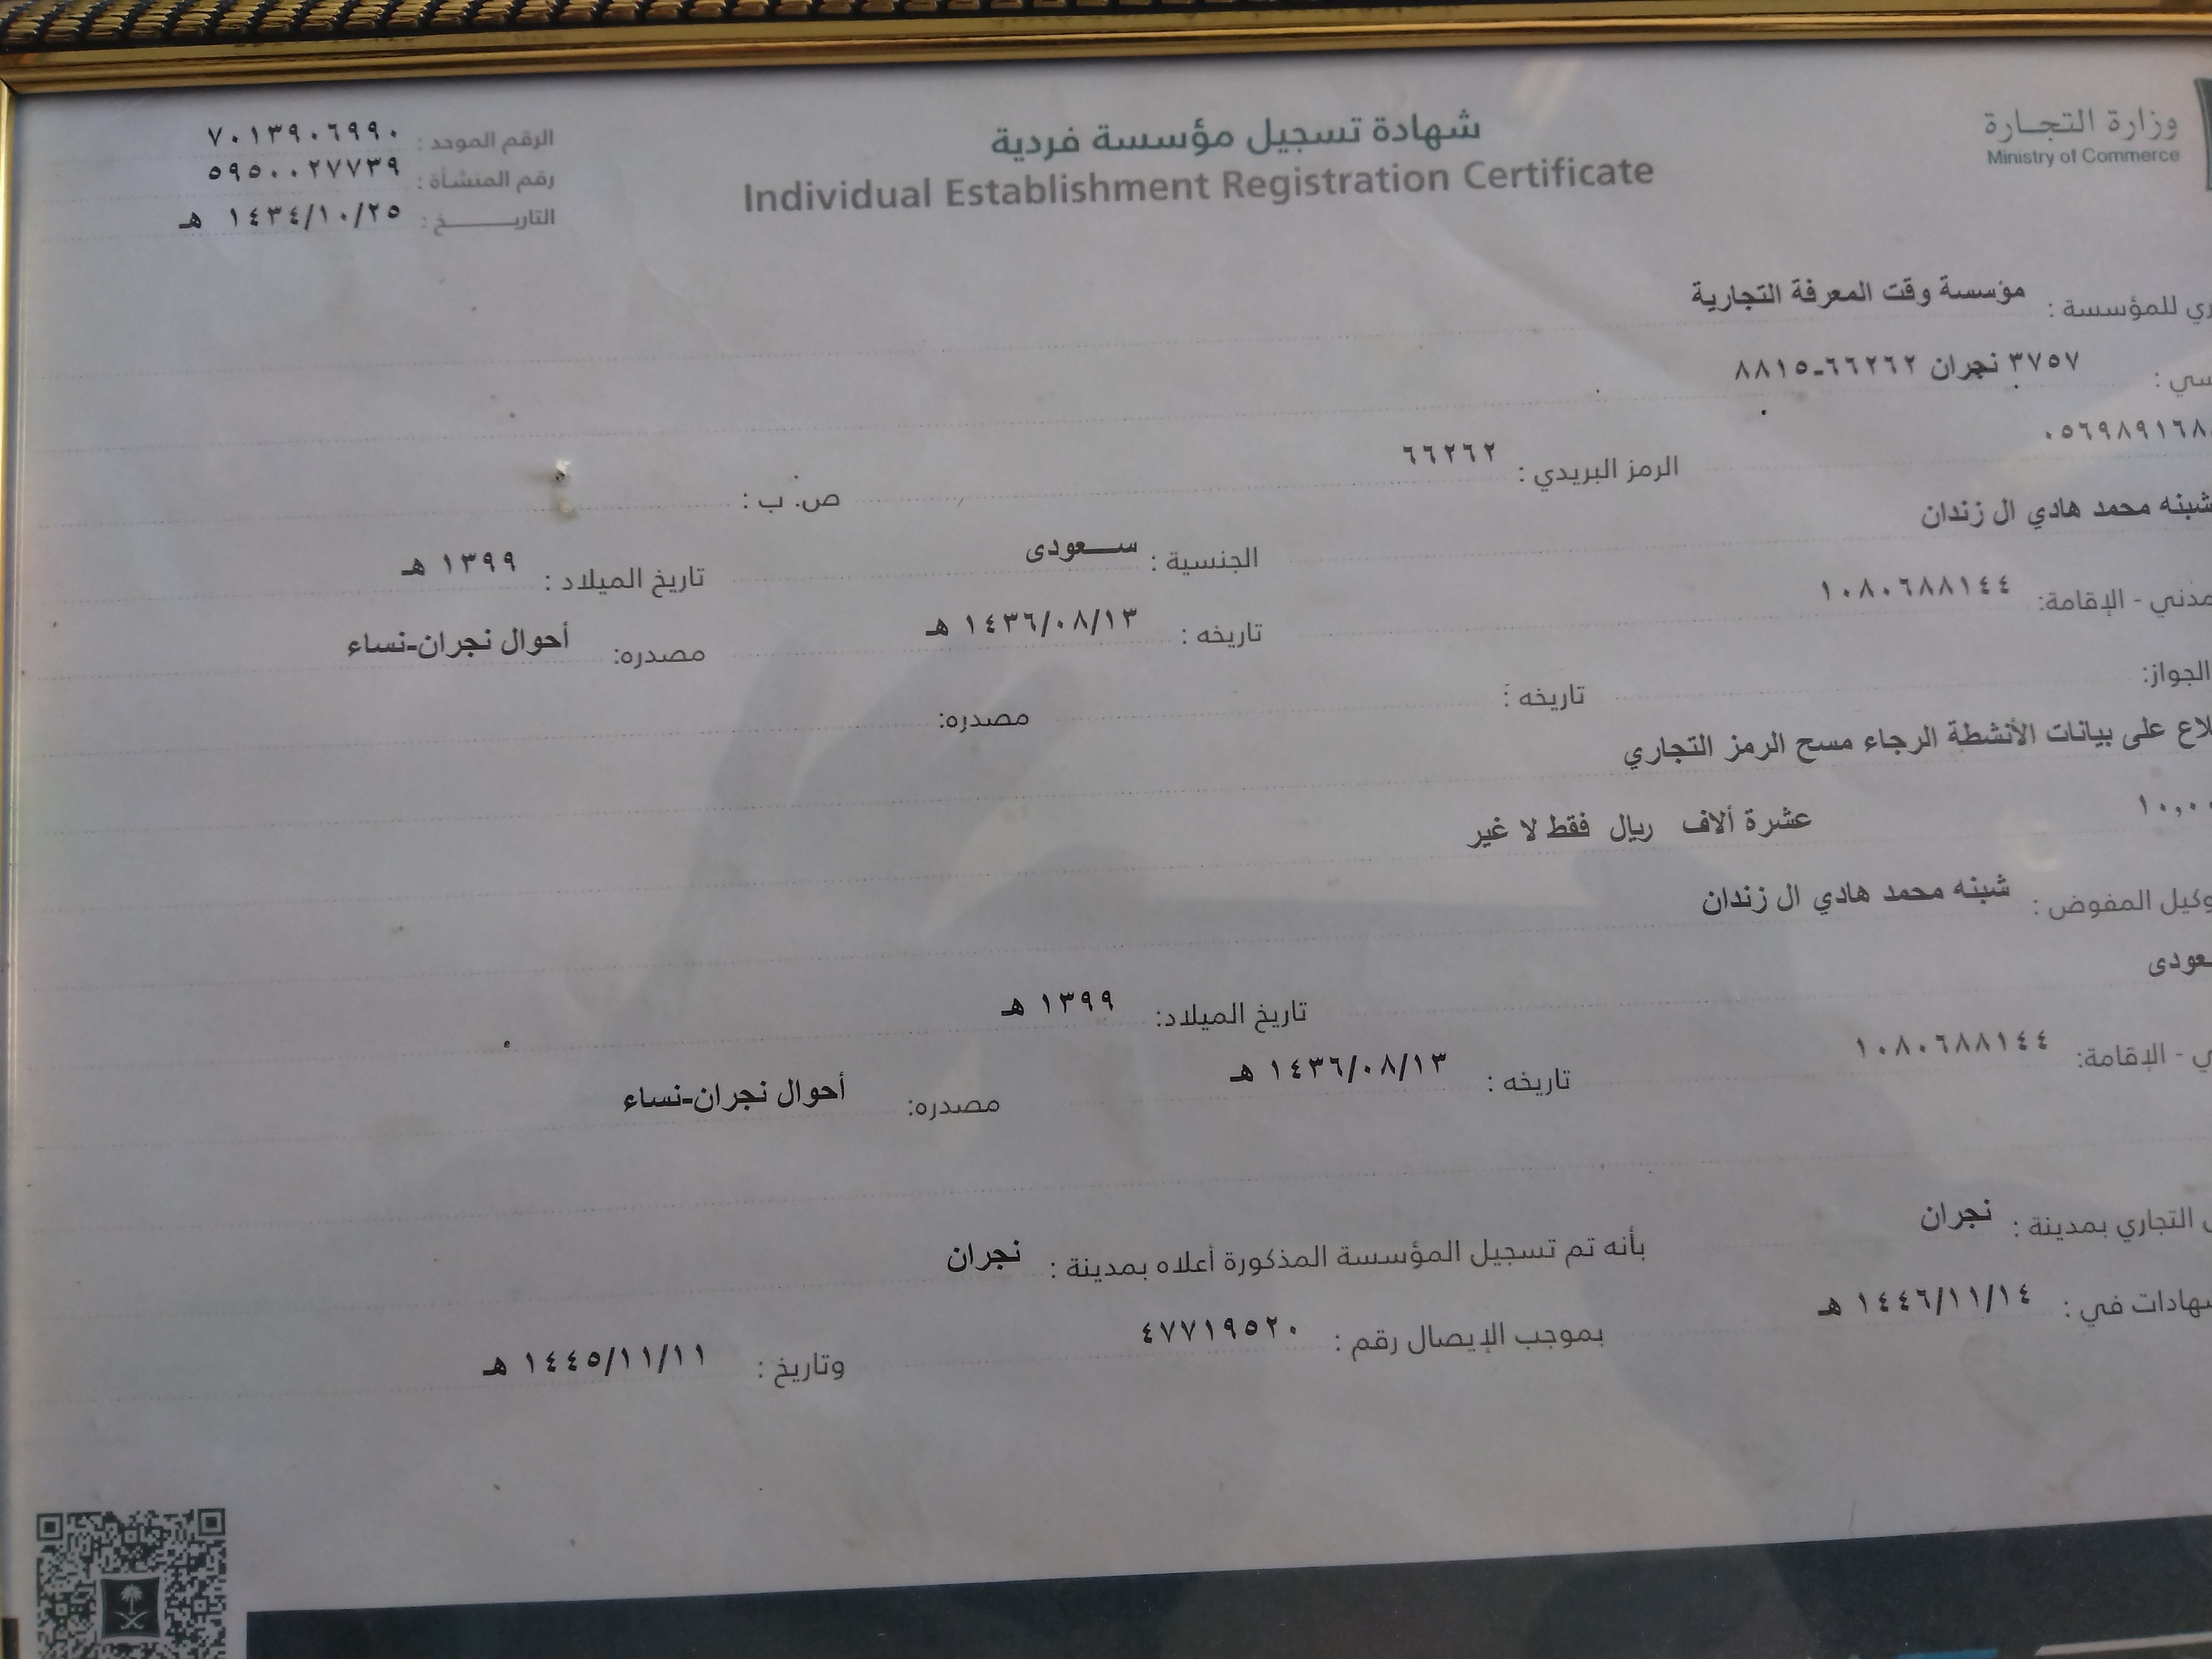 وزارة التجارة
Ministry of Commerce
شهادة تسجيل مؤسسة فردية
Individual Establishment Registration Certificate
الرقم الموحد : ٧٠١٣٩٠٦٩٩٠
رقم المنشأة : ٥٩٥٠٠٢٧٧٣٩
التاريخ : ١٤٣٤/١٠/٢٥ هـ
للمؤسسة : مؤسسة وقت المعرفة التجارية
٣٧٥٧ نجران ٦٦٢٦٢-٨٨١٥
٠٥٦٩٨٩١٦٨ الرمز البريدي : ٦٦٢٦٢ ص. ب :
شبنه محمد هادي ال زندان الجنسية : سعودى تاريخ الميلاد : ١٣٩٩ هـ
- الإقامة: ١٠٨٠٦٨٨١٤٤ تاريخه : ١٤٣٦/٠٨/١٣ هـ مصدره: أحوال نجران-نساء
الجواز: تاريخه : مصدره:
على بيانات الأنشطة الرجاء مسح الرمز التجاري
عشرة ألاف ريال فقط لا غير
المفوض : شبنه محمد هادي ال زندان
تاريخ الميلاد: ١٣٩٩ هـ
- الإقامة: ١٠٨٠٦٨٨١٤٤ تاريخه : ١٤٣٦/٠٨/١٣ هـ مصدره: أحوال نجران-نساء
التجاري بمدينة : نجران بأنه تم تسجيل المؤسسة المذكورة أعلاه بمدينة : نجران
في : ١٤٤٦/١١/١٤ هـ بموجب الإيصال رقم : ٤٧٧١٩٥٢٠ وتاريخ : ١٤٤٥/١١/١١ هـ